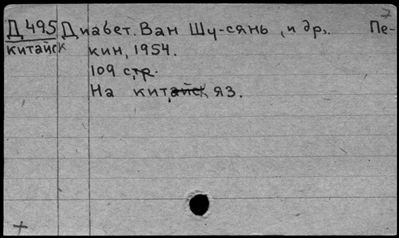 7
Д 495 Диабет. Ван Шу-сянь, и др. Пе-
китайск кин, 1954.
109 стр.
На китайск яз.